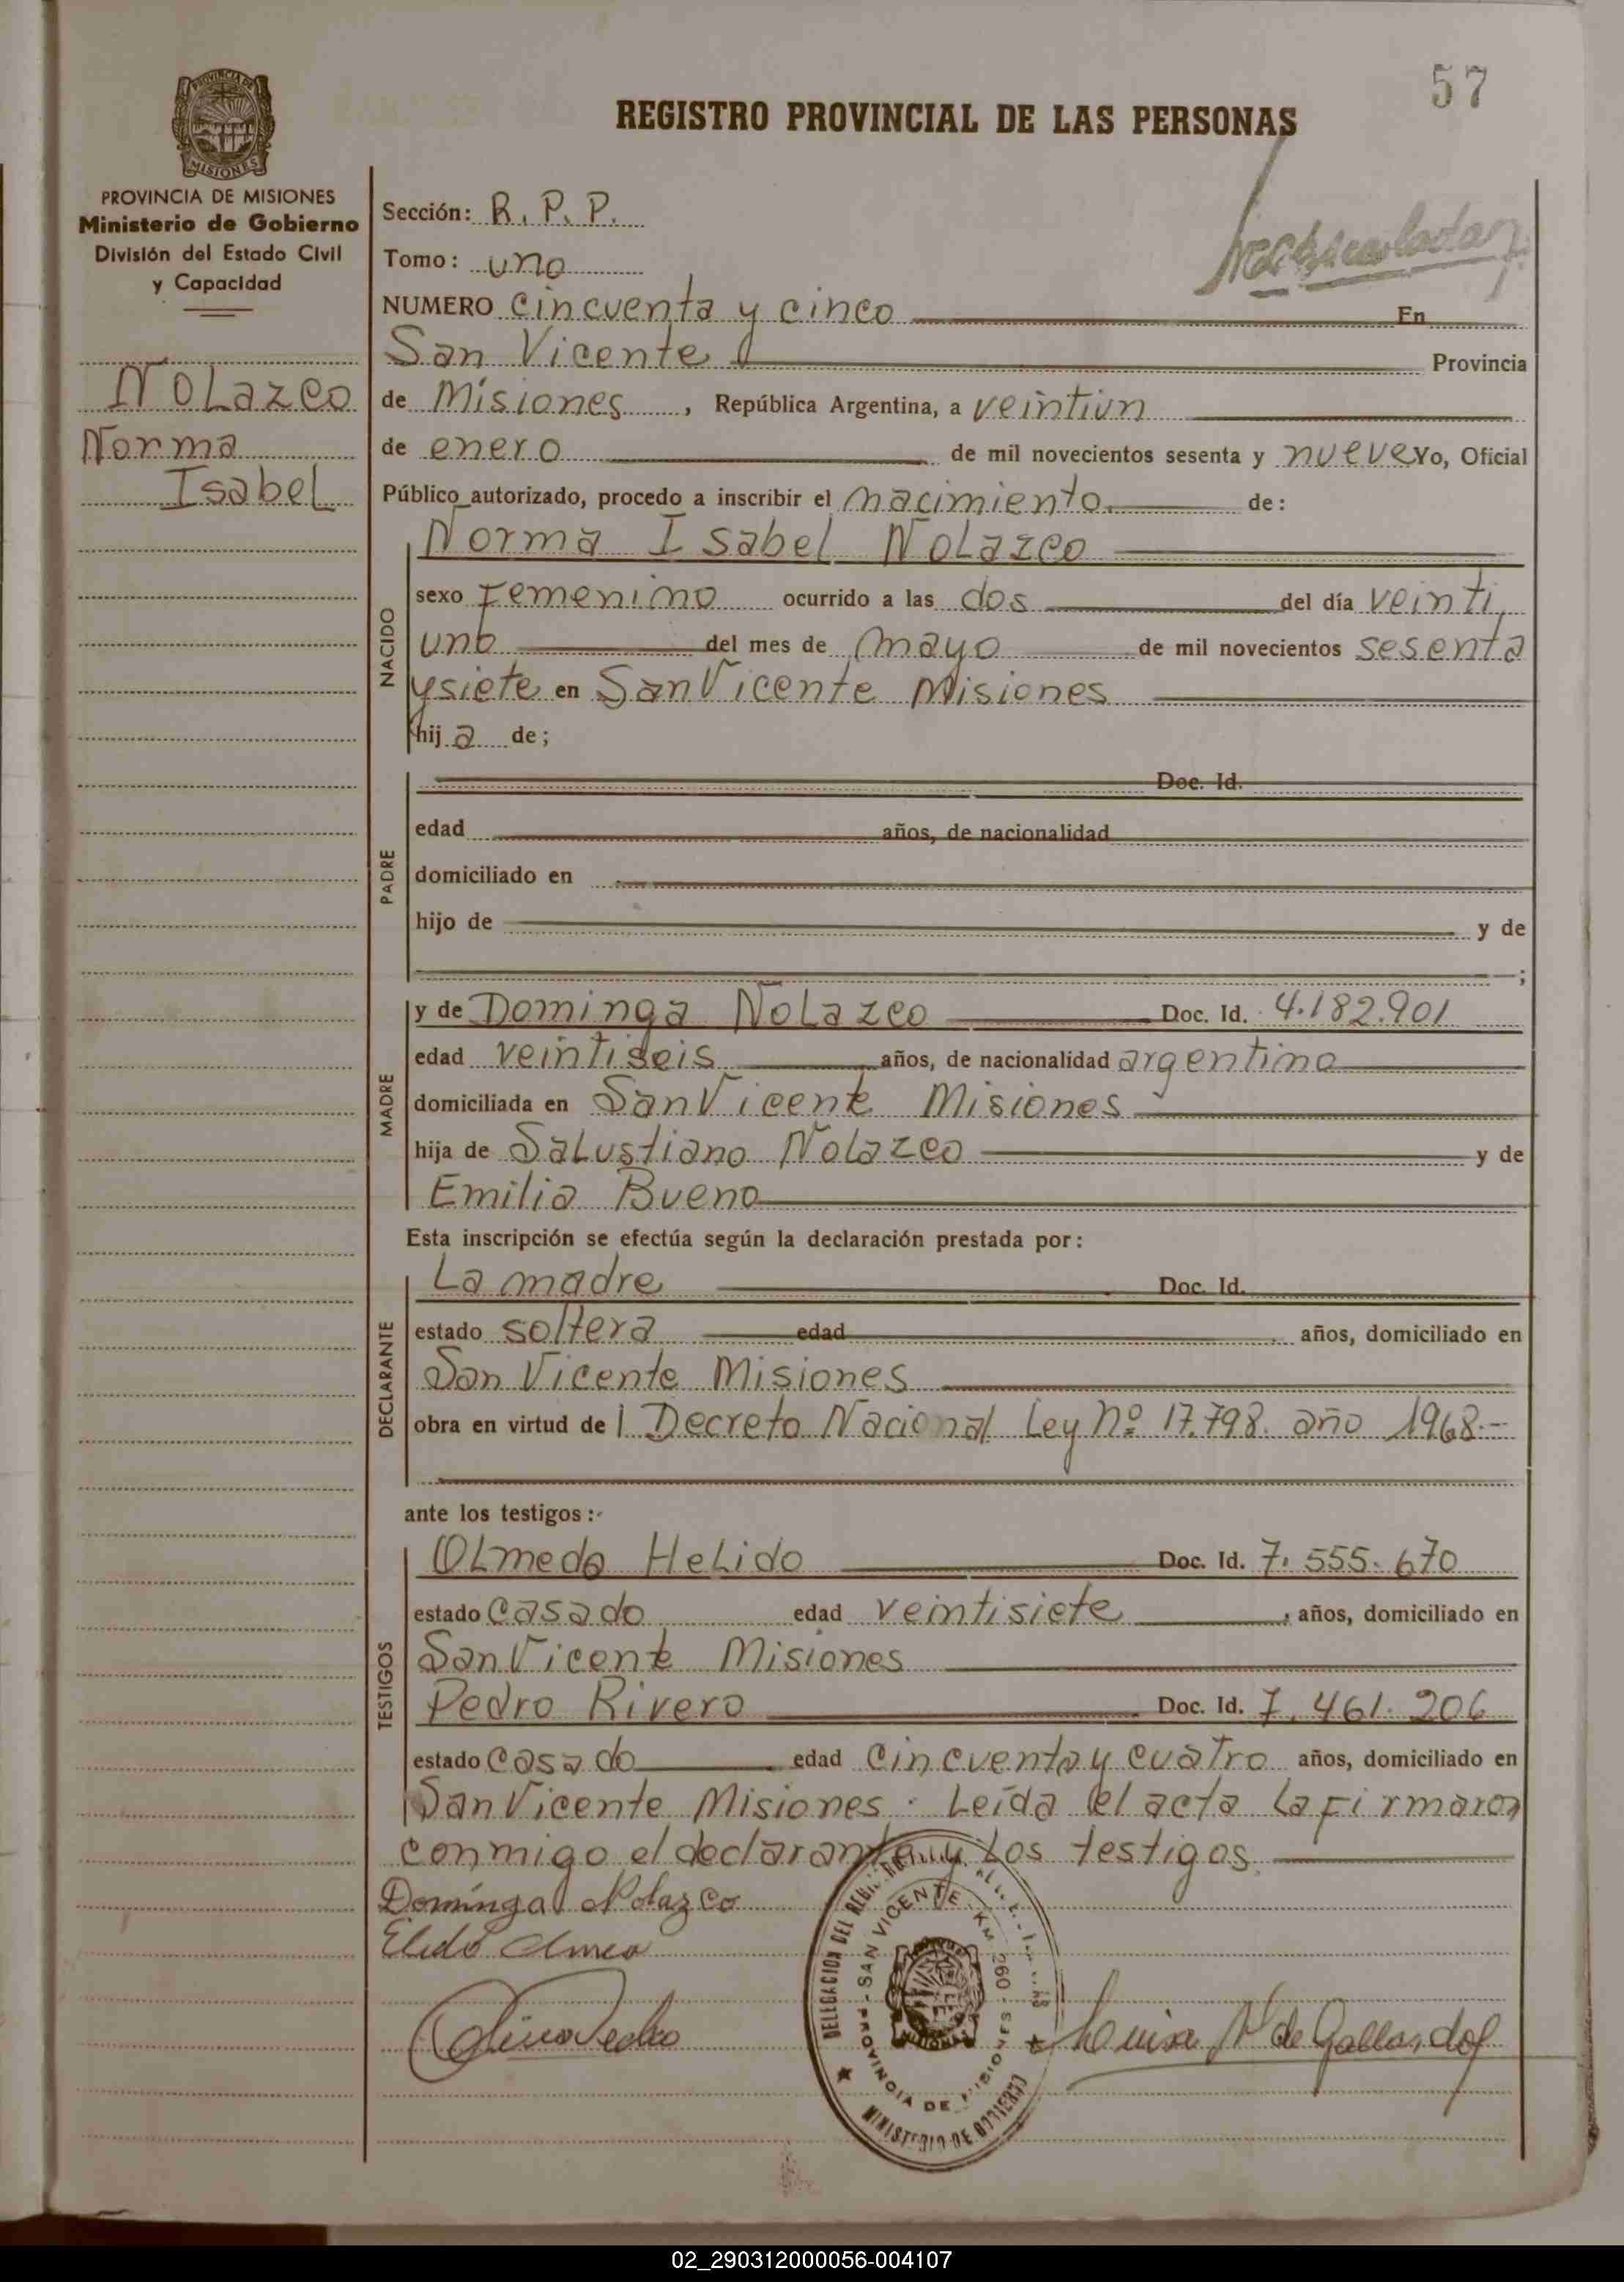 57
REGISTRO PROVINCIAL DE LAS PERSONAS
PROVINCIA DE MISIONES
Ministerio de Gobierno
División del Estado Civil
y Capacidad
Nolazco
Norma
Isabel
Sección: R. P. P.
Tomo: uno
NUMERO cincuenta y cinco En
San Vicente Provincia
de Misiones, República Argentina, a veintiun
de enero de mil novecientos sesenta y nueve Yo, Oficial
Público autorizado, procedo a inscribir el nacimiento de:
Norma Isabel Nolazco
NACIDO
sexo Femenino ocurrido a las dos del día veinti
uno del mes de mayo de mil novecientos sesenta
y siete en San Vicente Misiones
hija de;
PADRE
Doc. Id.
edad años, de nacionalidad
domiciliado en
hijo de y de
;
MADRE
y de Dominga Nolazco Doc. Id. 4.182.901
edad veintiseis años, de nacionalidad argentina
domiciliada en San Vicente Misiones
hija de Salustiano Nolazco y de
Emilia Bueno
Esta inscripción se efectúa según la declaración prestada por:
DECLARANTE
La madre Doc. Id.
estado soltera edad años, domiciliado en
San Vicente Misiones
obra en virtud de l Decreto Nacional Ley Nº 17.798. año 1968.-
ante los testigos:
TESTIGOS
Olmedo Helido Doc. Id. 7.555.670
estado casado edad veintisiete, años, domiciliado en
San Vicente Misiones
Pedro Rivero Doc. Id. 7.461.206
estado casado edad cincuenta y cuatro años, domiciliado en
San Vicente Misiones. Leída el acta la firmaron
conmigo el declarante y los testigos.
Dominga Nolazco
DELEGACION DEL
SAN VICENTE - KM 260
PROVINCIA DE MISIONES
MINISTERIO DE GOBIERNO
Luisa de Gallardo
02_290312000056-004107